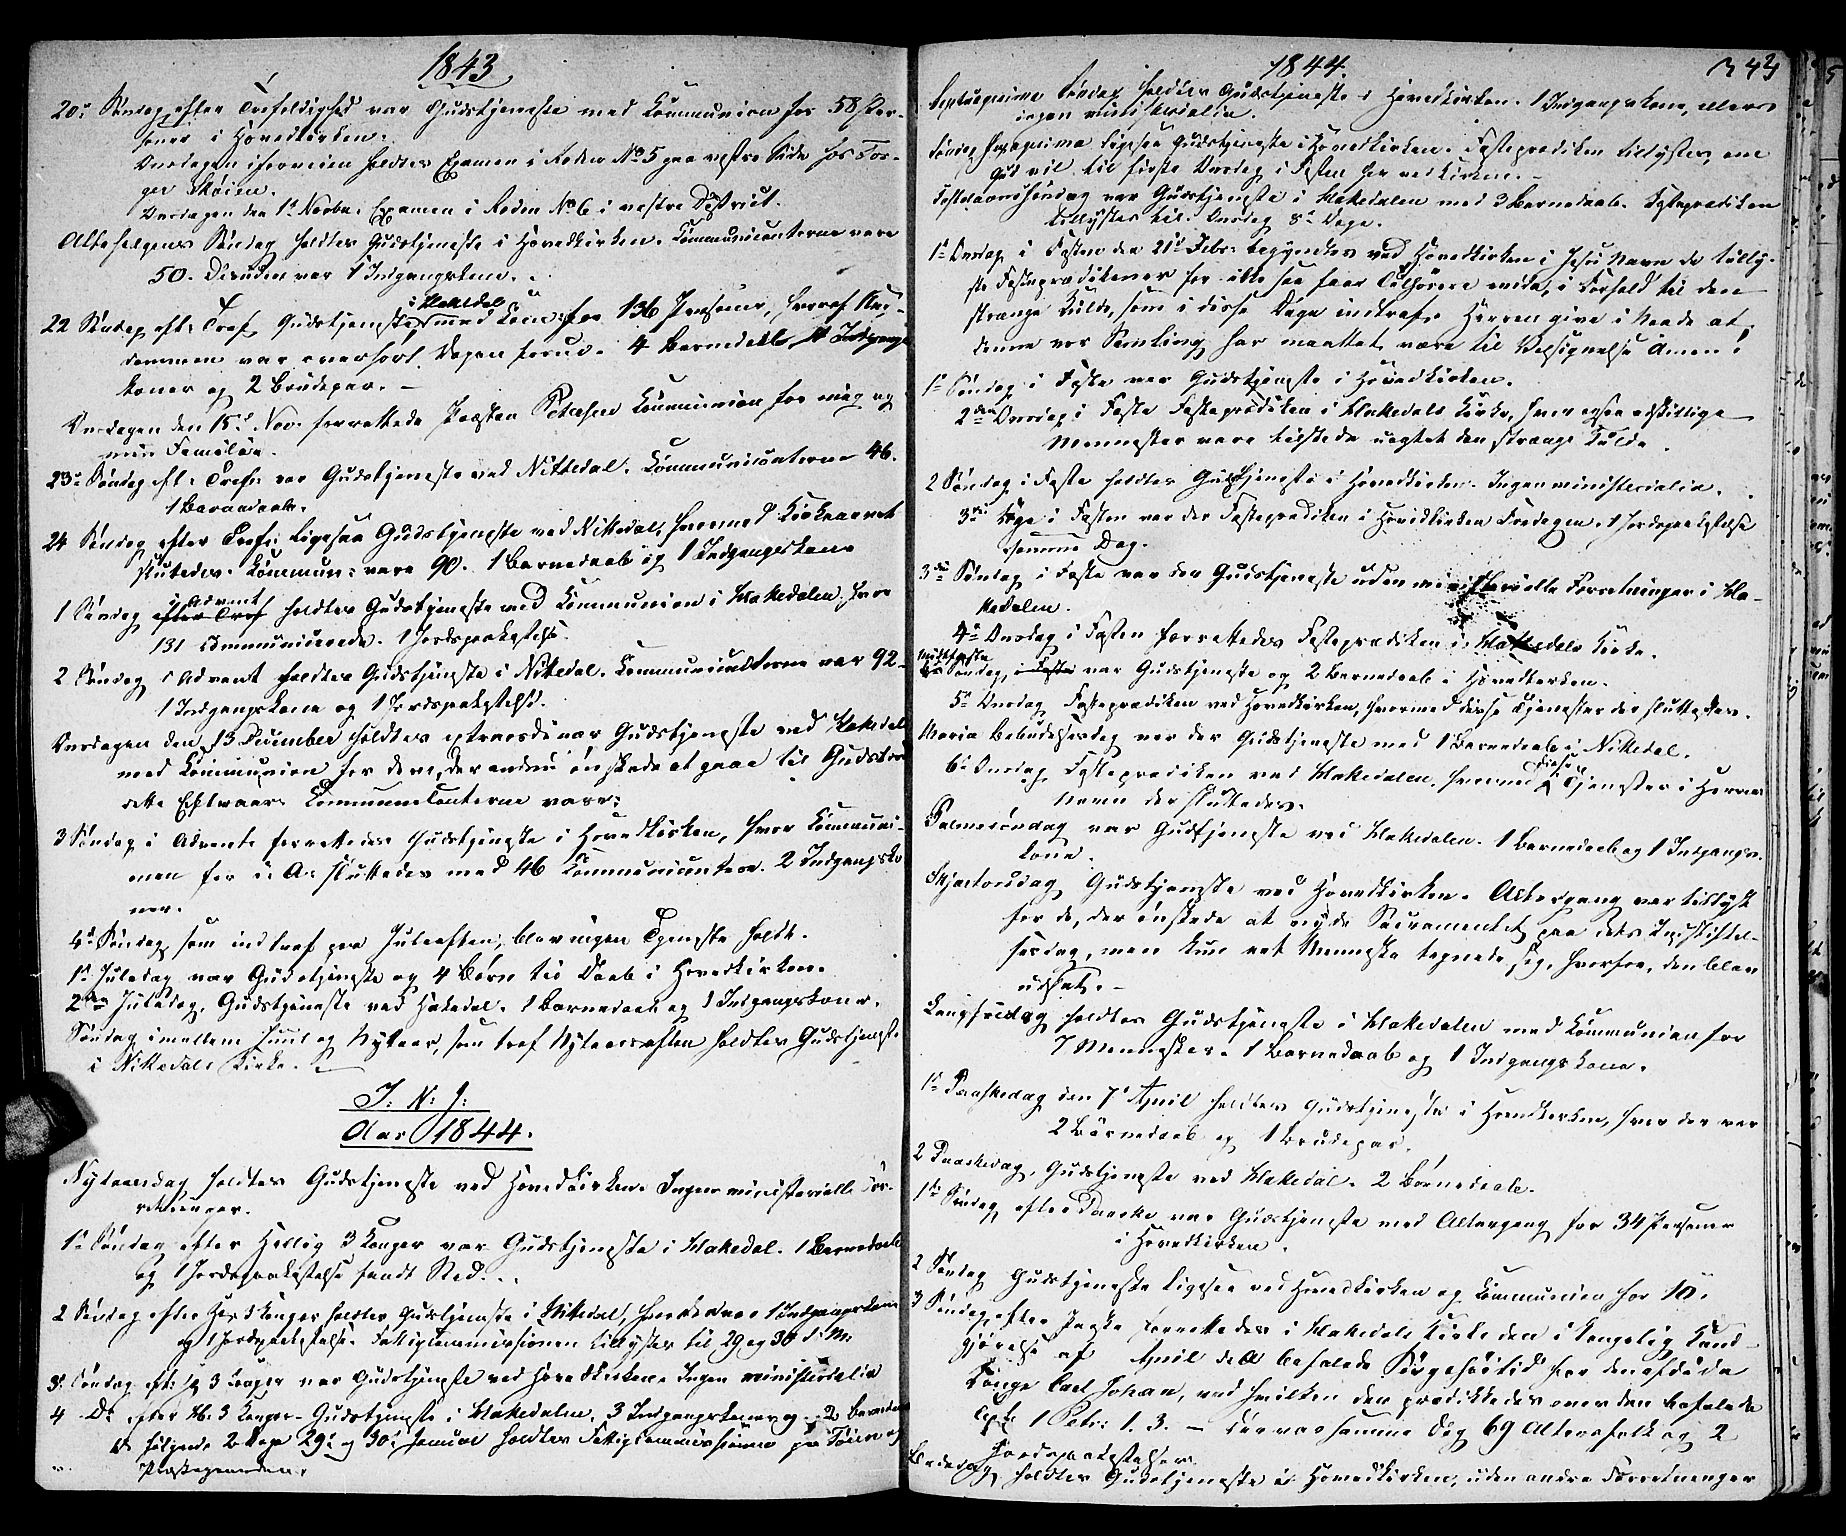 1843
20de Søndag efter Trefoldighed var Gudstjeneste med Communion for 58 Per-
soner i Hovedkirken.
Onsdagen iforveien holdtes Examen i Roden No 5 paa vestre Side hos Tor-
ger Skøien.
Onsdagen den 1ste Novbr. Examen i Roden No 6 i vestre District.
Allehelgens Søndag holdtes Gudstjeneste i Hovedkirken. Communicanterne vare
50. Desuden var 1 Indgangskone.
22 Søndag eft: Tref. Gudstjeneste i Hakedal med Com: for 136 Personer, hvoraf
var Dagen forud. 4 Barnedaab, Indgangs
koner og 2 Brudepar.
Onsdagen den 15d Nov. forrettede Præsten Petersen Communion for mig og
min Familie.
23de Søndag eft: Tref: var Gudstjeneste ved Nittedal. Communicanterne 46.
1 Barnedaab.
24 Søndag efter Tref: ligesaa Gudstjeneste ved Nittedal, hvormed Kirkeaaret
sluttedes. Commun: vare 90. 1 Barnedaab og 1 Indgangskone
1 Søndag i Advent holdtes Gudstjeneste med Communion i Hakedalen, hvor
131 communicerede. 1 Jordspaakastelse.
2 Søndag i Advent holdtes Gudstjeneste i Nittedal. Communicanterne var 92
1 Indgangskone og 1 Jordspaakastelse.
Onsdagen den 13 December holdtes extraordinær Gudstjeneste ved Hakedal
med Communion for dem, der endnu ønskede at gaae til Gudsbord
dette Efteraar. Communicanterne vare:
3 Søndag i Advents forrettedes Gudstjeneste i Hovedkirken, hvor Communi-
onen for i: A: sluttedes med 46 Communicantere. 2 Indgangsko
ner.
4de Søndag, som indtraf paa Juleaften, blev ingen Tjeneste holdt.
1ste Juledag var Gudstjeneste og 4 Børn til Daab i Hovedkirken.
2den Juledag, Gudstjeneste ved Hakedal. 1 Barnedaab og 1 Indgangskone.
Søndag imellem Juul og Nytaar, som traf Nytaarsaften holdtes Gudstjeneste
i Nittedals Kirke.
I: N: J:
Aar 1844.
Nytaarsdag holdtes Gudstjeneste ved Hovedkirken. Ingen ministerielle For-
retninger.
1ste Søndag efter Hellig 3 Konger var Gudstjeneste i Hakedal. 1 Barnedaab
og 1 Jordspaakastelse fandt Sted.
2 Søndag efter 3 Konger holdtes Gudstjeneste i Nittedal, 1 Indgangskone
og 1 Jordspaakastelse. Fattigcommissionen tillystes til 29 og 30 d: M:
3de Søndag eft: H 3 Konger var Gudstjeneste ved Hovedkirken. Ingen ministerialia
4 Do efter H. 3 Konger. Gudstjeneste i Hakedalen. 3 Indgangskoner og 2 Barnedaab
følgende 2 Dage 29de og 30te Januar holdtes Fattigcommissioner paa Døien og
Præstegaarden.
1844.
343
Septuagesima Søndag holdtes Gudstjeneste i Hovedkirken. 1 Indgangskone, ellers
ingen ministerialia.
Søndag Sexagesima ligesaa Gudstjeneste i Hovedkirken. Fasteprædiken tillystes, om
Gud vil til første Onsdag i Fasten her ved Kirken.
Fastelavnssøndag var Gudstjeneste i Hakedalen med 3 Barnedaab. Fasteprædiken
tillystes til Onsdag 8te Dage.
1ste Onsdag i Fasten den 21de Febr: begyndtes ved Hovedkirken i Jesu Navn de tilly-
ste Fasteprædikener for ikke saa faa Tilhørere endda, i Forhold til den
strænge Kulde, som i disse Dage indtraf. Herren give i Naade at
denne vor Samling har maattet være til Velsignelse Amen!
1ste Søndag i Faste var Gudstjeneste i Hovedkirken.
2den Onsdag i Faste Fasteprædiken i Hakedals Kirke, hvor ogsaa adskillige
Mennesker vare tilstede uagtet den strænge Kulde.
2 Søndag i Faste holdtes Gudstjeneste i Hovedkirken. Ingen ministerialia.
3die Uge i Fasten var der Fasteprædiken i Hovedkirken Fredagen. 1 Jordspaakastelse
samme Dag.
3die Søndag i Faste var der Gudstjeneste uden ministerielle Forretninger i Ha-
kedalen.
4de Onsdag i Fasten forrettedes Fasteprædiken i Hakedals Kirke.
Midfaste Søndag, var Gudstjeneste og 2 Barnedaab i Hovedkirken.
5te Onsdag Fasteprædiken ved Hovedkirken, hvormed disse Tjenester der sluttedes.
Maria Bebudelsesdag var der Gudstjeneste med 1 Barnedaab i Nittedal.
6te Onsdag Fasteprædiken ved Hakedalen, hvormed disse Tjenester i Herrens
Navn der sluttedes.
Palmesøndag var Gudstjeneste ved Hakedalen. 1 Barnedaab og 1 Indgangs-
kone.
Skjærtorsdag Gudstjeneste ved Hovedkirken. Altergang var tillyst
for de, der ønskede at nyde Sacramentet paa dets Indstiftel-
sesdag, men kun eet Menneske tegnede sig, hvorfor, den blev
udsat.
Langfredag holdtes Gudstjeneste i Hakedalen med Communion for
7 Mennesker. 1 Barnedaab og 1 Indgangskone.
1ste Paaskedag den 7de April holdtes Gudstjeneste i Hovedkirken, hvor der var
2 Børnedaab og 1 Brudepar.
2 Paaskedag, Gudstjeneste ved Hakedal. 2 Børnedaab.
1ste Søndag efter Paaske var Gudstjeneste med Altergang for 34 Personer
i Hovedkirken.
2 Søndag Gudstjeneste ligesaa ved Hovedkirken og Communion for 10.
3 Søndag efter Paaske forrettedes i Hakedals Kirke den i Kongelig Kund-
gjørelse af April d: A befalede Sørgehøitid for den afdøde
Konge Carl Johan, ved hvilken der prædikedes over den befalede
Text 1 Petr: 1. 3. — Der var samme Dag 69 Altersfolk og 2
Jordspaakastelser.
Bededag holdtes Gudstjeneste i Hovedkirken, uden andre Forretninger